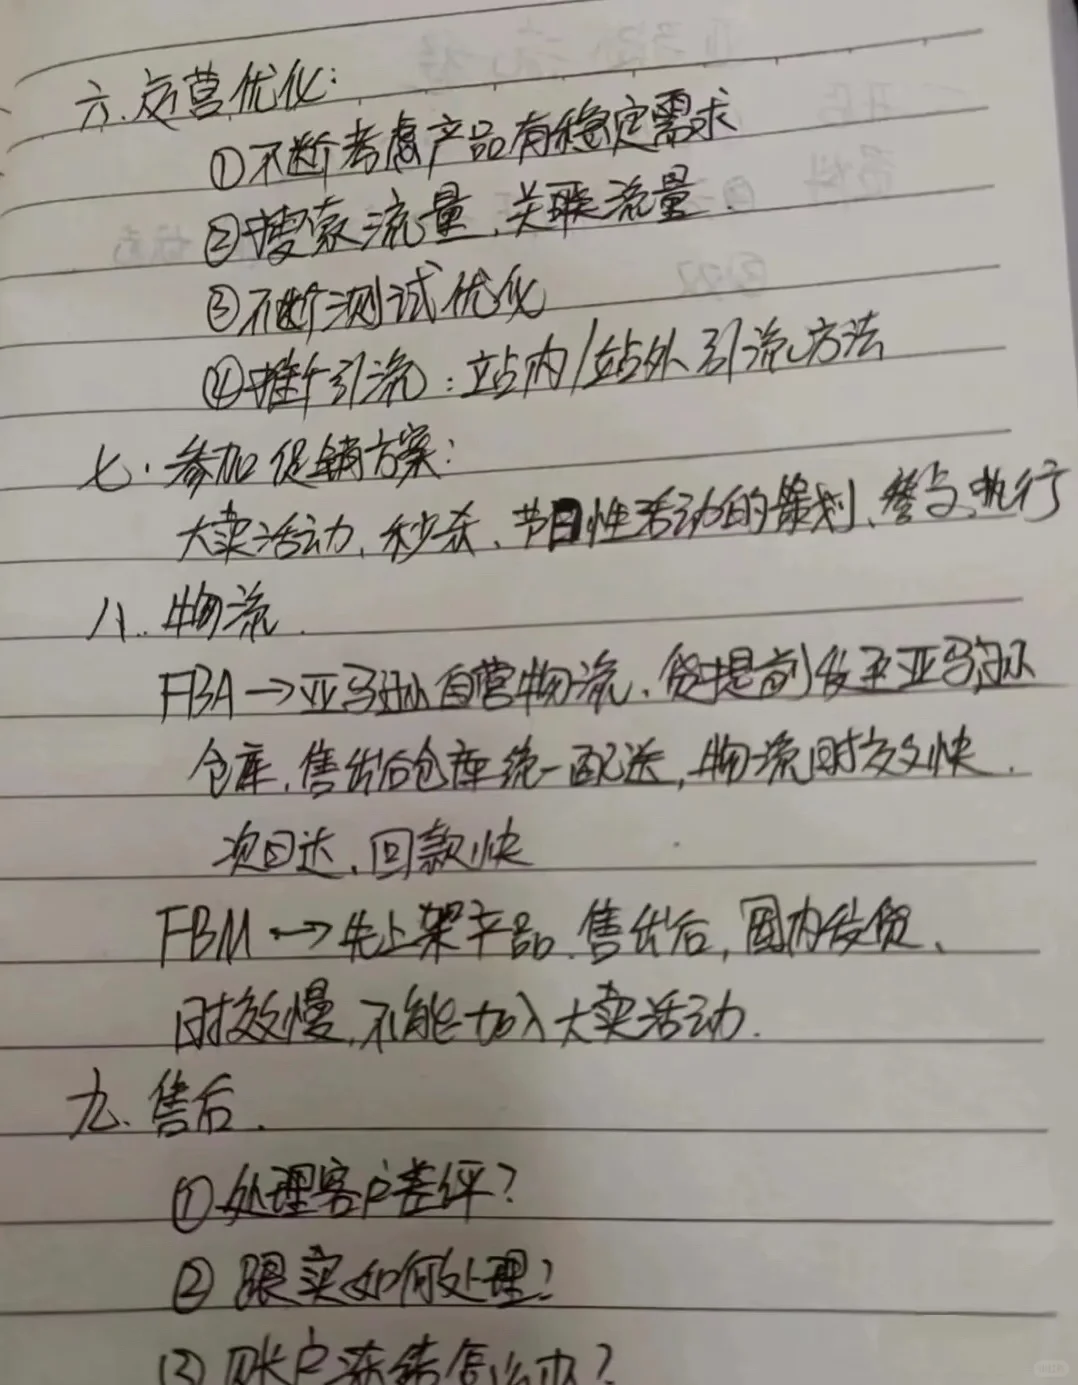 六.运营优化:
①不断考虑产品有稳定需求
②搜索流量、关联流量.
③不断测试优化
④推广引流:站内/站外引流方法
七.参加促销方案:
大卖活动、秒杀、节日性活动的策划、参与、执行
八.物流.
FBA→亚马逊自营物流、货提前发至亚马逊
仓库、售出后仓库统一配送,物流时效快.
次日达、回款快
FBM→先上架产品.售出后,国内发货、
时效慢,不能加入大卖活动.
九.售后.
①处理客户差评?
②跟卖如何处理?
③账户冻结怎么办?